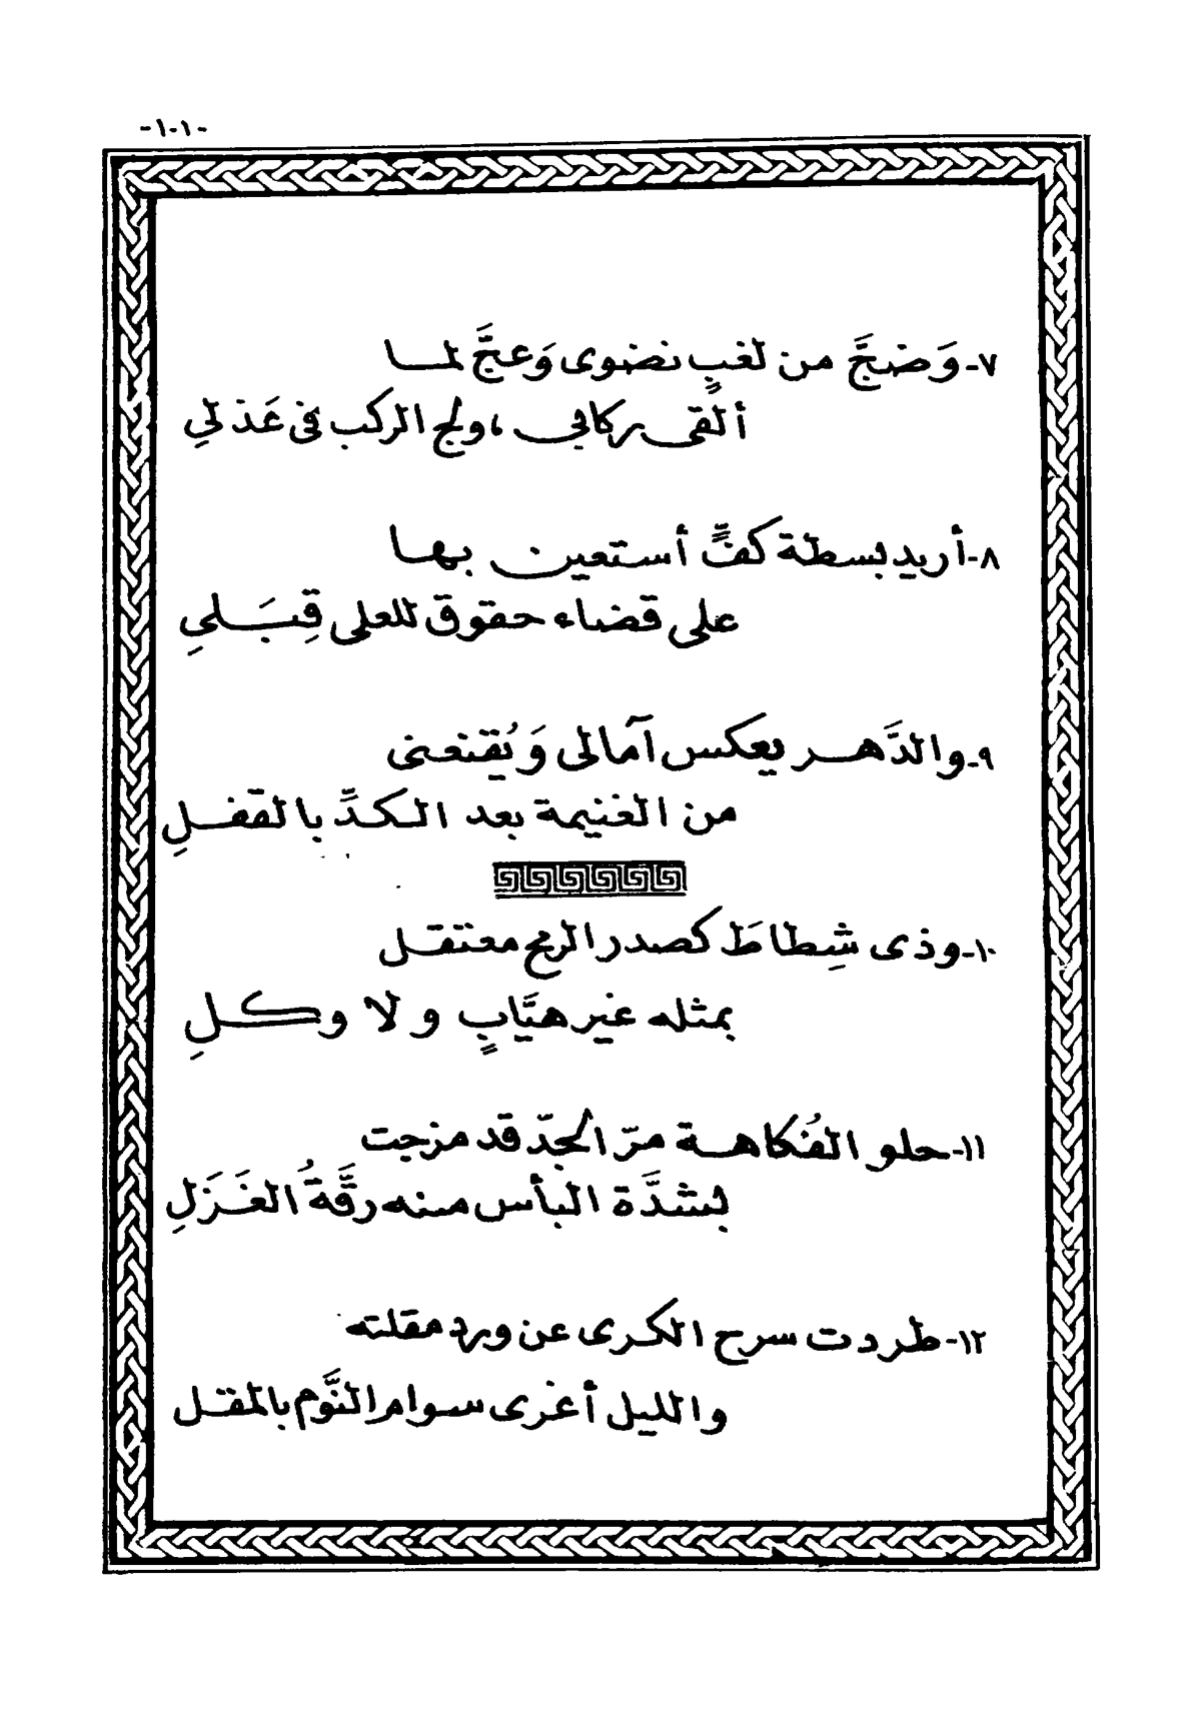 -١٠١-
٧-وَضجَّ من لغبٍ نضوى وَعجَّ لمـا
ألقى ركابي، ولج الركب في عَذلي
٨-أريد بسطة كفٍّ أستعين بهـا
على قضاء حقوق للعلى قِبَـلي
٩-والدَّهـر يعكس آمالى وَيُقنعنى
من الغنيمة بعد الـكدِّ بالقفـلِ
١٠-وذى شِطاطَ كصدر الرمح معتقـل
بمثله غير هيَّابٍ ولا وكـلِ
١١-حلو الفُكاهـة مرّ الجدّ قد مزجت
بشدَّة البأس منه رقَّةُ الغَـزَلِ
١٢-طردت سرح الكرى عن ورد مقلته
والليل أغرى سوام النَّوم بالمقـل